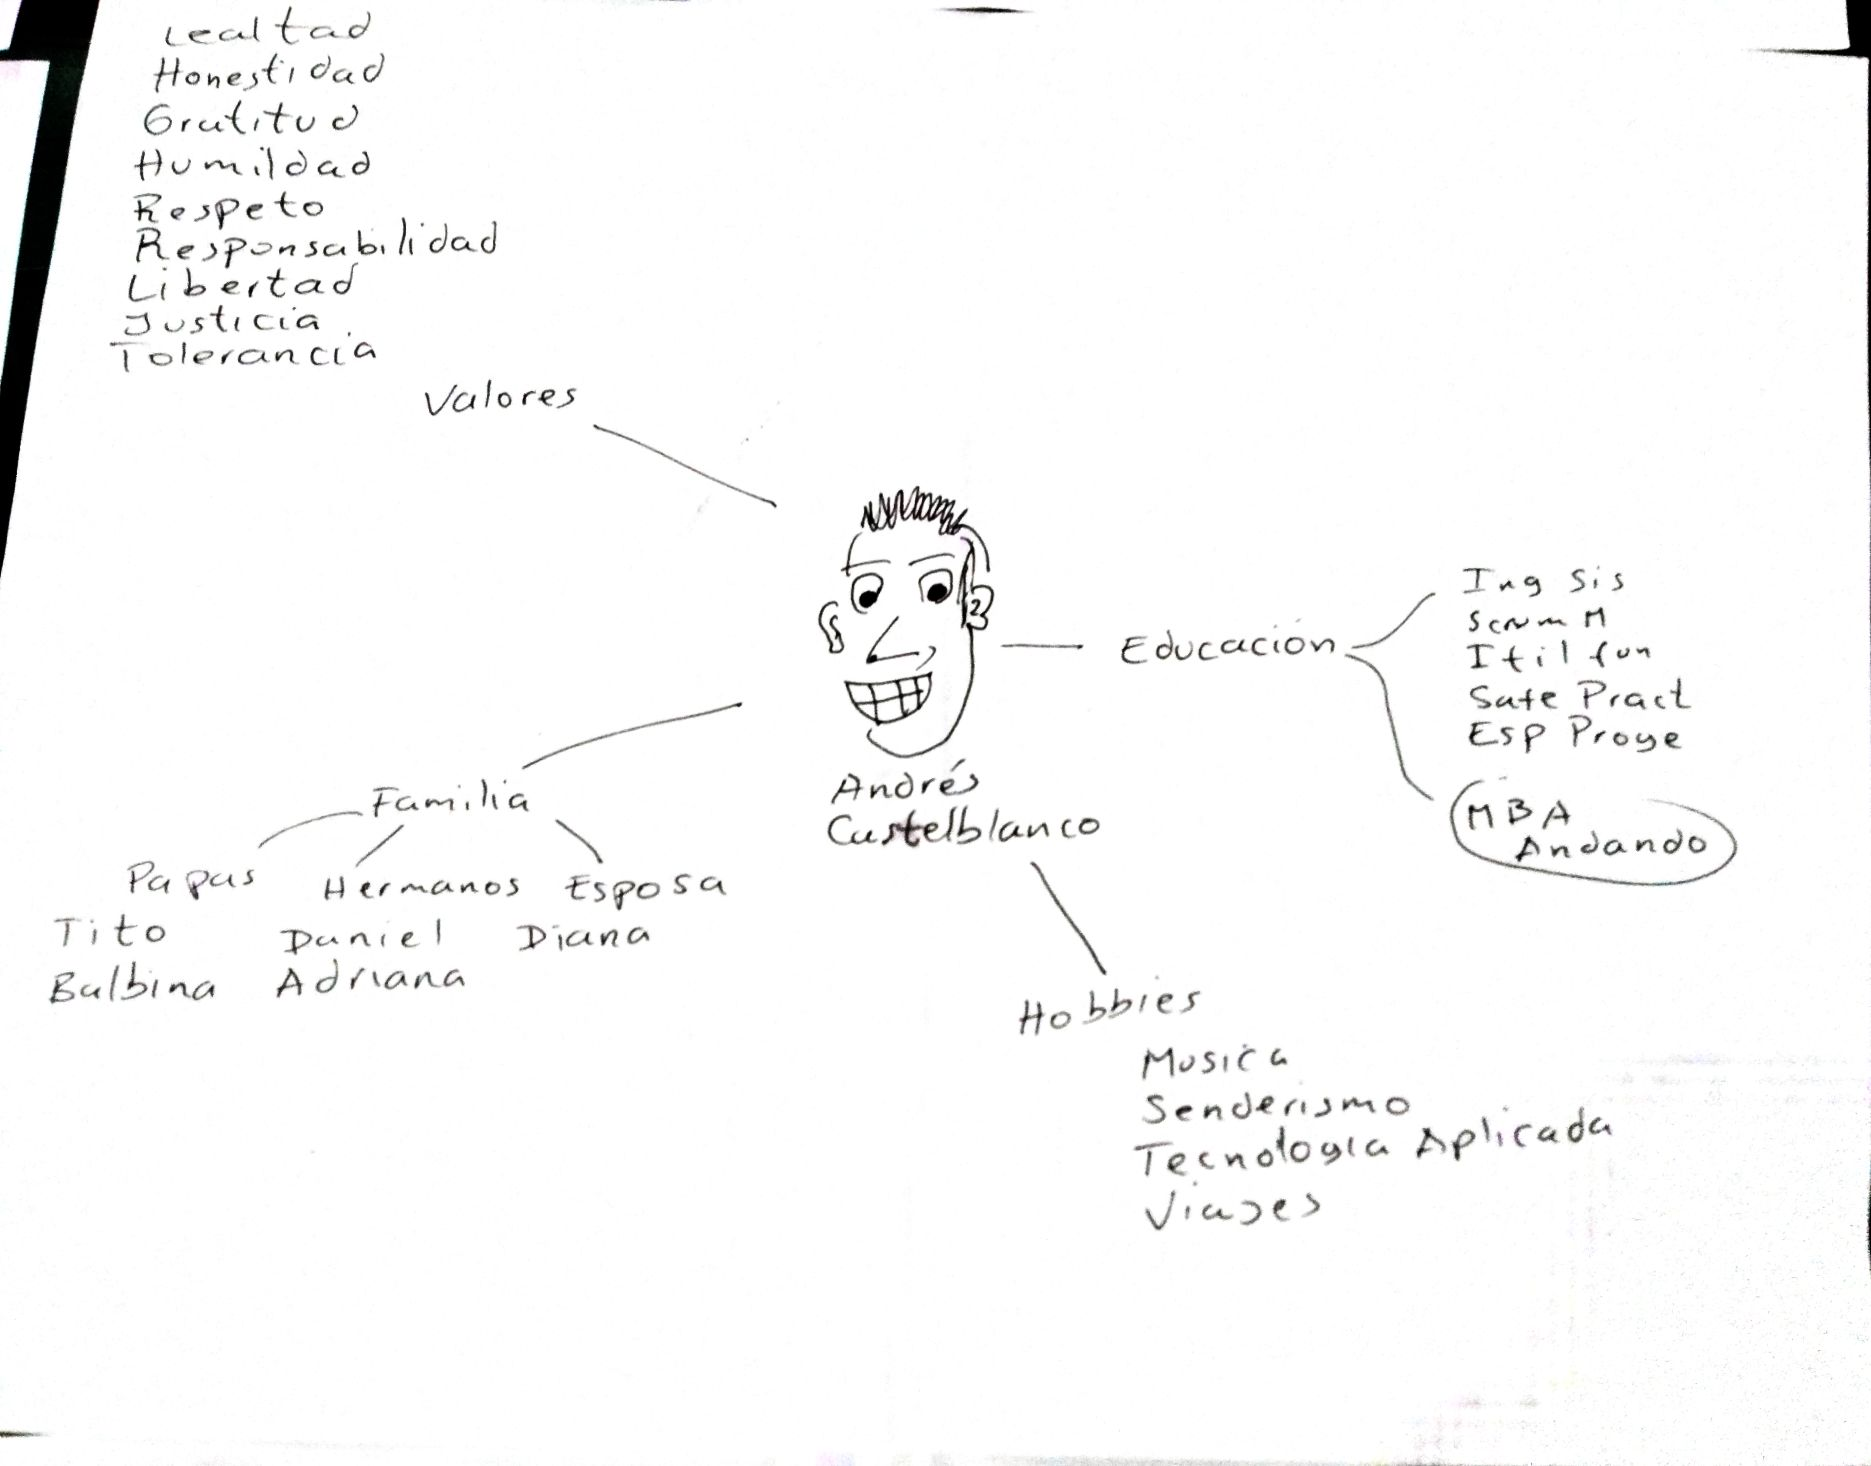 Lealtad
Honestidad
Gratitud
Humildad
Respeto
Responsabilidad
Libertad
Justicia
Tolerancia
Valores
Educación
Ing Sis
Scrum M
Itil fun
Safe Pract
Esp Proye
MBA
Andando
Andrés
Castelblanco
Familia
Papas Hermanos Esposa
Tito Daniel Diana
Balbina Adriana
Hobbies
Musica
Senderismo
Tecnologia Aplicada
Viajes